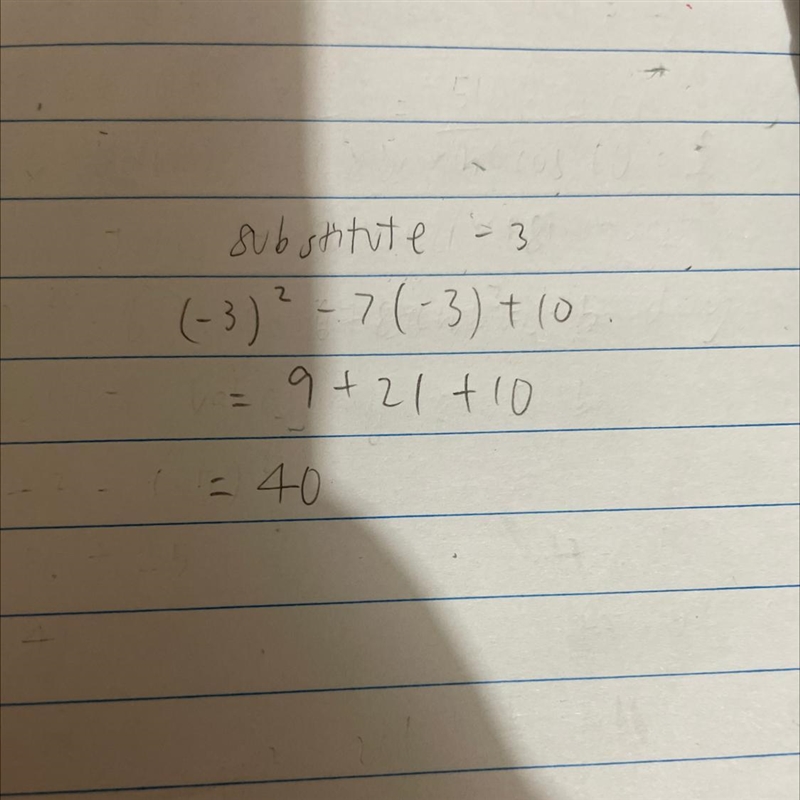 substitute = 3
(-3)² - 7(-3) + 10.
= 9 + 21 + 10
= 40